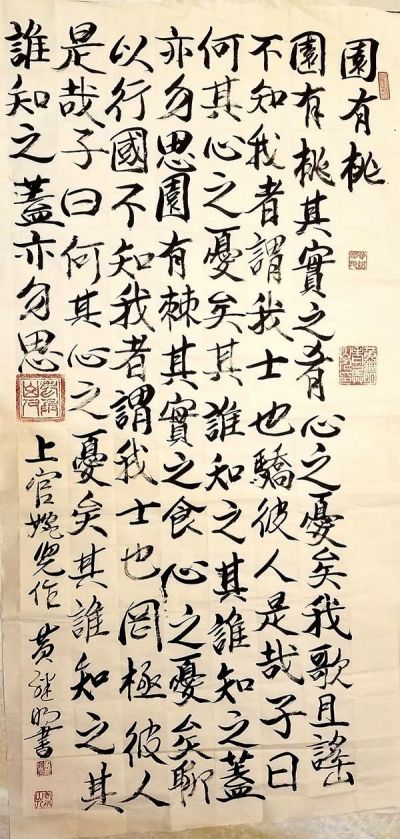 園有桃
園有桃其實之肴心之憂矣我歌且謠
不知我者謂我士也驕彼人是哉子曰
何其心之憂矣其誰知之其誰知之蓋
亦勿思園有棘其實之食心之憂矣聊
以行國不知我者謂我士也罔極彼人
是哉子曰何其心之憂矣其誰知之其
誰知之蓋亦勿思
上官婉兒作 黃明書